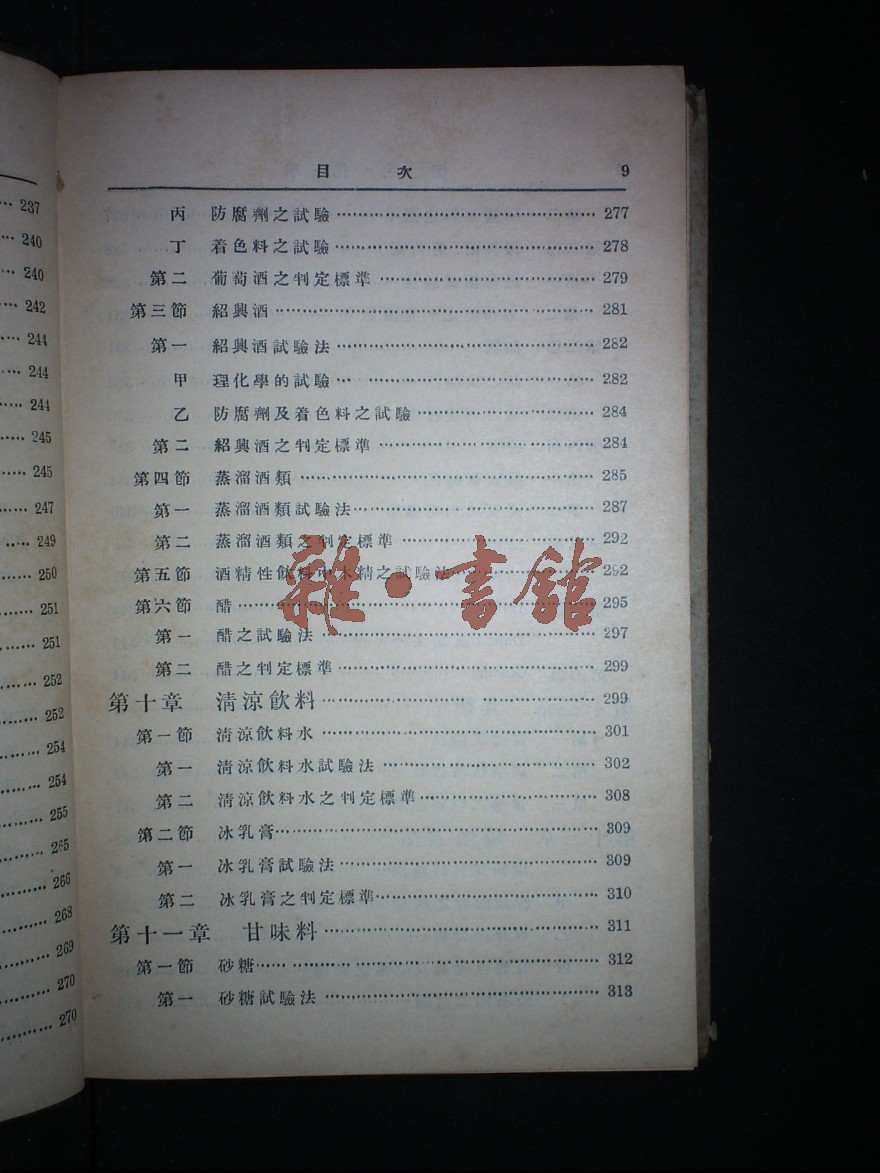 237
240
240
242
244
244
244
245
245
247
249
250
251
251
252
252
254
254
255
266
268
269
270
270
目 次 9
丙 防腐劑之試驗 277
丁 着色料之試驗 278
第二 葡萄酒之判定標準 279
第三節 紹興酒 281
第一 紹興酒試驗法 282
甲 理化學的試驗 282
乙 防腐劑及着色料之試驗 284
第二 紹興酒之判定標準 284
第四節 蒸溜酒類 285
第一 蒸溜酒類試驗法 287
第二 蒸溜酒類之判定標準 292
第五節 酒精性飲料中木精之試驗法 292
第六節 醋 295
第一 醋之試驗法 297
第二 醋之判定標準 299
第十章 淸涼飲料 299
第一節 淸涼飲料水 301
第一 淸涼飲料水試驗法 302
第二 淸涼飲料水之判定標準 308
第二節 冰乳膏 309
第一 冰乳膏試驗法 309
第二 冰乳膏之判定標準 310
第十一章 甘味料 311
第一節 砂糖 312
第一 砂糖試驗法 313
雜·書館